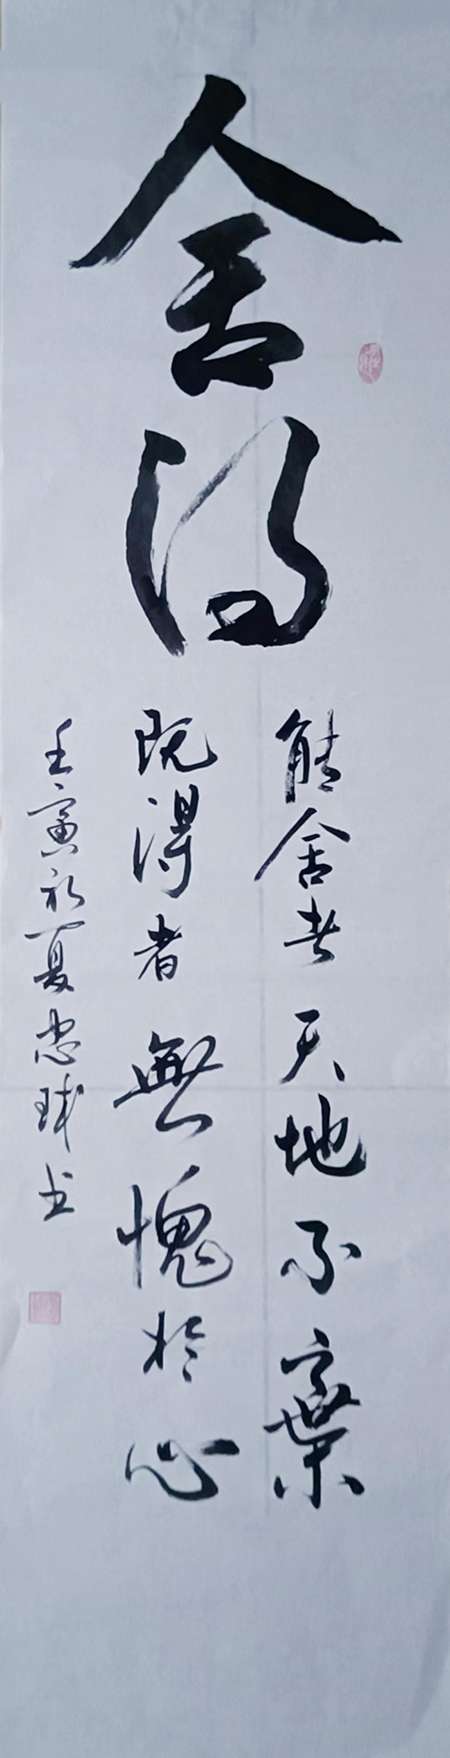 舍得
能舍者天地不棄
既得者無愧於心
壬寅初夏忠球书